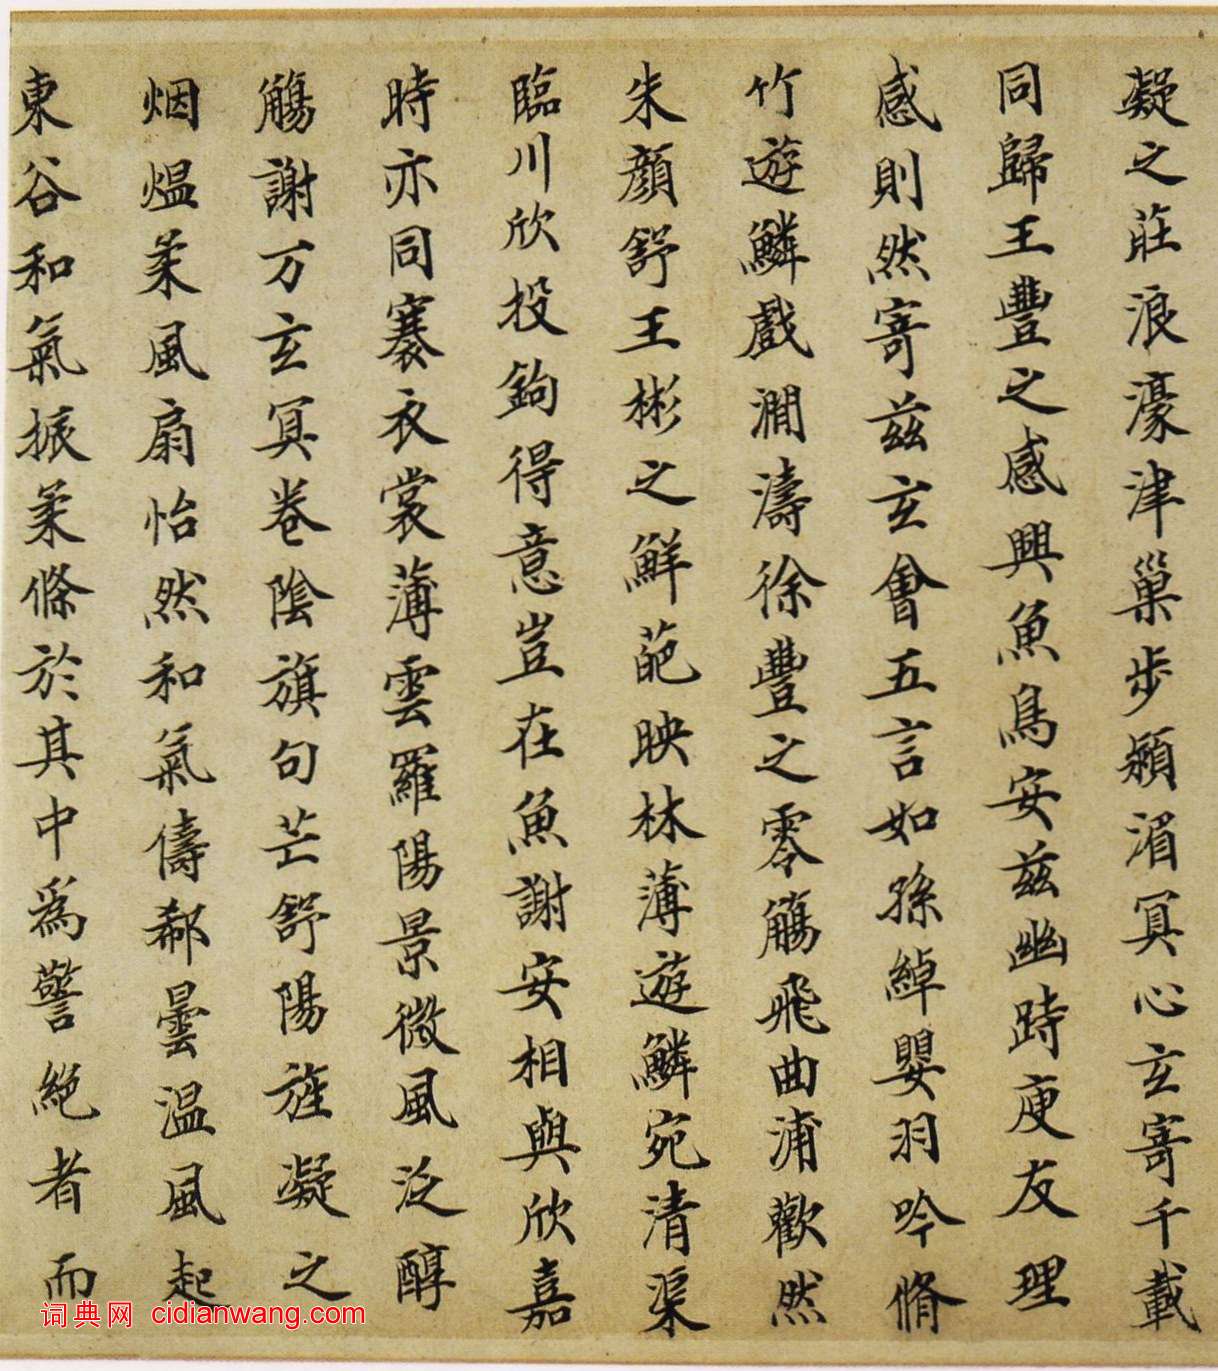 凝之莊浪濠津巢步潁湄冥心玄寄千載
同歸王豐之感興魚鳥安茲幽時庾友理
感則然寄茲玄會五言如孫綽嬰羽吟脩
竹遊鱗戲澗濤徐豐之零觴飛曲浦歡然
朱顏舒王彬之鮮葩映林薄遊鱗宛清渠
臨川欣投鉤得意豈在魚謝安相與欣嘉
時亦同褰衣裳薄雲羅陽景微風泛醇
觴謝万玄冥卷陰旗句芒舒陽旌凝之
烟熅柔風扇怡然和氣儔郗曇温風起
東谷和氣振柔條於其中爲警絕者而
词典网 cidianwang.com